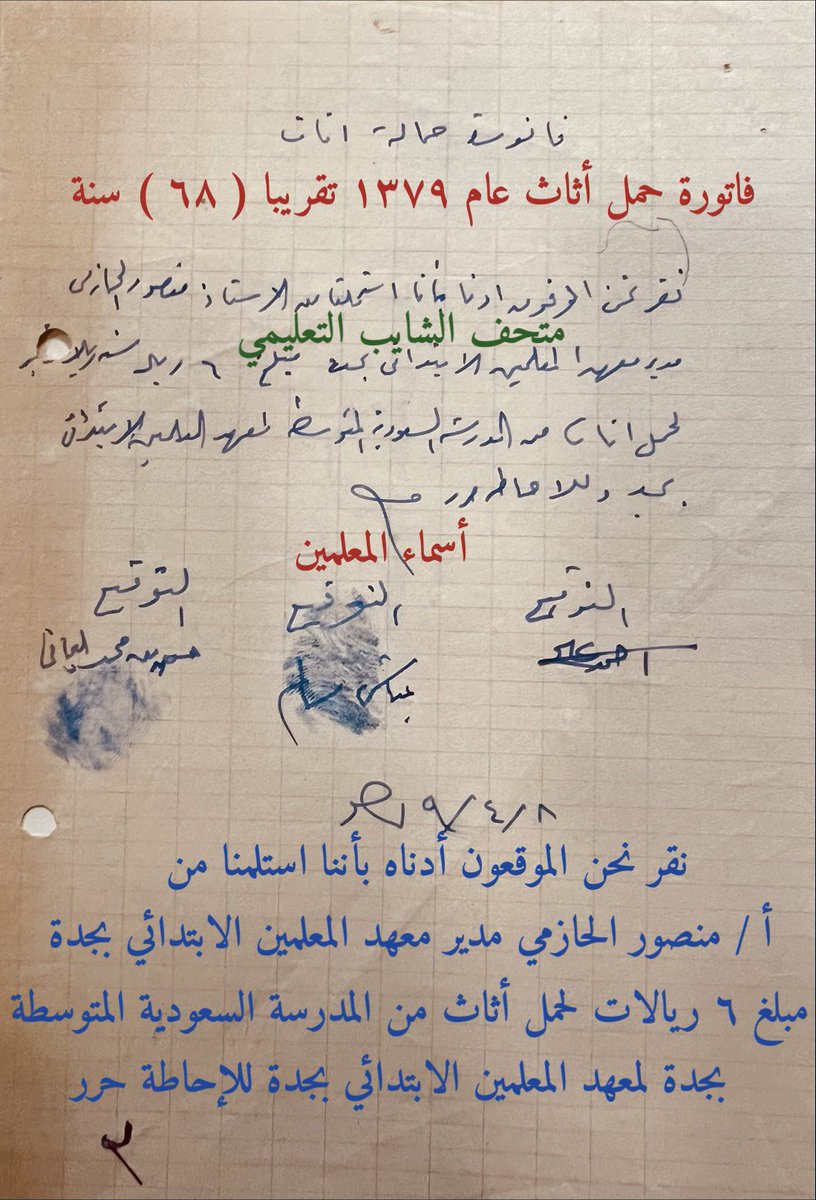 فاتورة حمالة اثاث
فاتورة حمل أثاث عام ١٣٧٩ تقريبا ( ٦٨ ) سنة
نقر نحن الموقعون ادناه بأننا استلمنا من الاستاذ منصور الحازمي
متحف الشايب التعليمي
مدير معهد المعلمين الابتدائي بجدة مبلغ ٦ ريال ستة ريالات
لحمل اثاث من المدرسة السعودية المتوسطة لمعهد المعلمين الابتدائي
بجدة وللاحاطة حرر
أسماء المعلمين
التوقيع التوقيع التوقيع
احمد
محمد
٨/٤/٧٩
نقر نحن الموقعون أدناه بأننا استلمنا من
أ / منصور الحازمي مدير معهد المعلمين الابتدائي بجدة
مبلغ ٦ ريالات لحمل أثاث من المدرسة السعودية المتوسطة
بجدة لمعهد المعلمين الابتدائي بجدة للإحاطة حرر